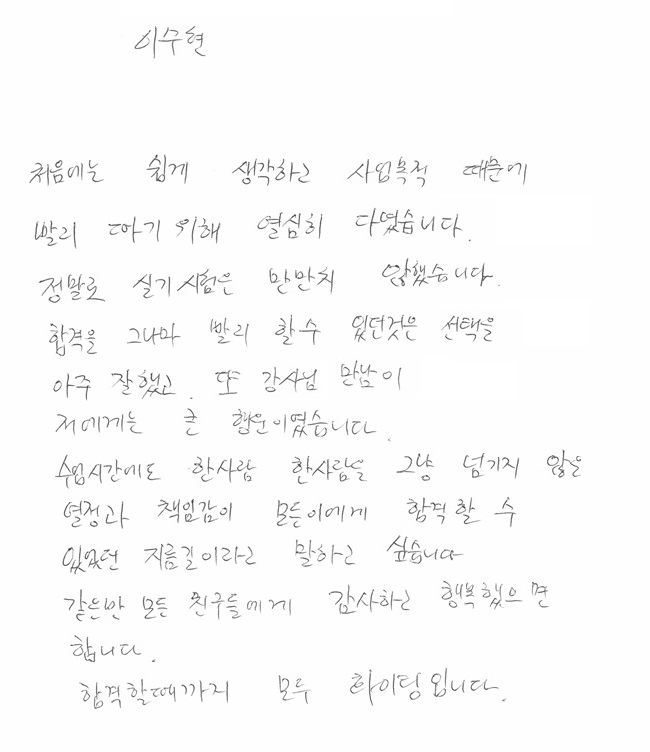 이수현
처음에는 쉽게 생각하고 사업목적 때문에
빨리 따기 위해 열심히 다녔습니다.
정말로 실기시험은 만만치 않했습니다.
합격을 그나마 빨리 할수 있던것은 선택을
아주 잘했고. 또 강사님 만남이
저에게는 큰 행운이였습니다.
수업시간에도 한사람 한사람을 그냥 넘기지 않은
열정과 책임감이 모든이에게 합격할 수
있었던 지름길이라고 말하고 싶습니다
같은반 모든 친구들에게 감사하고 행복했으면
합니다.
합격할때까지 모두 화이팅입니다.